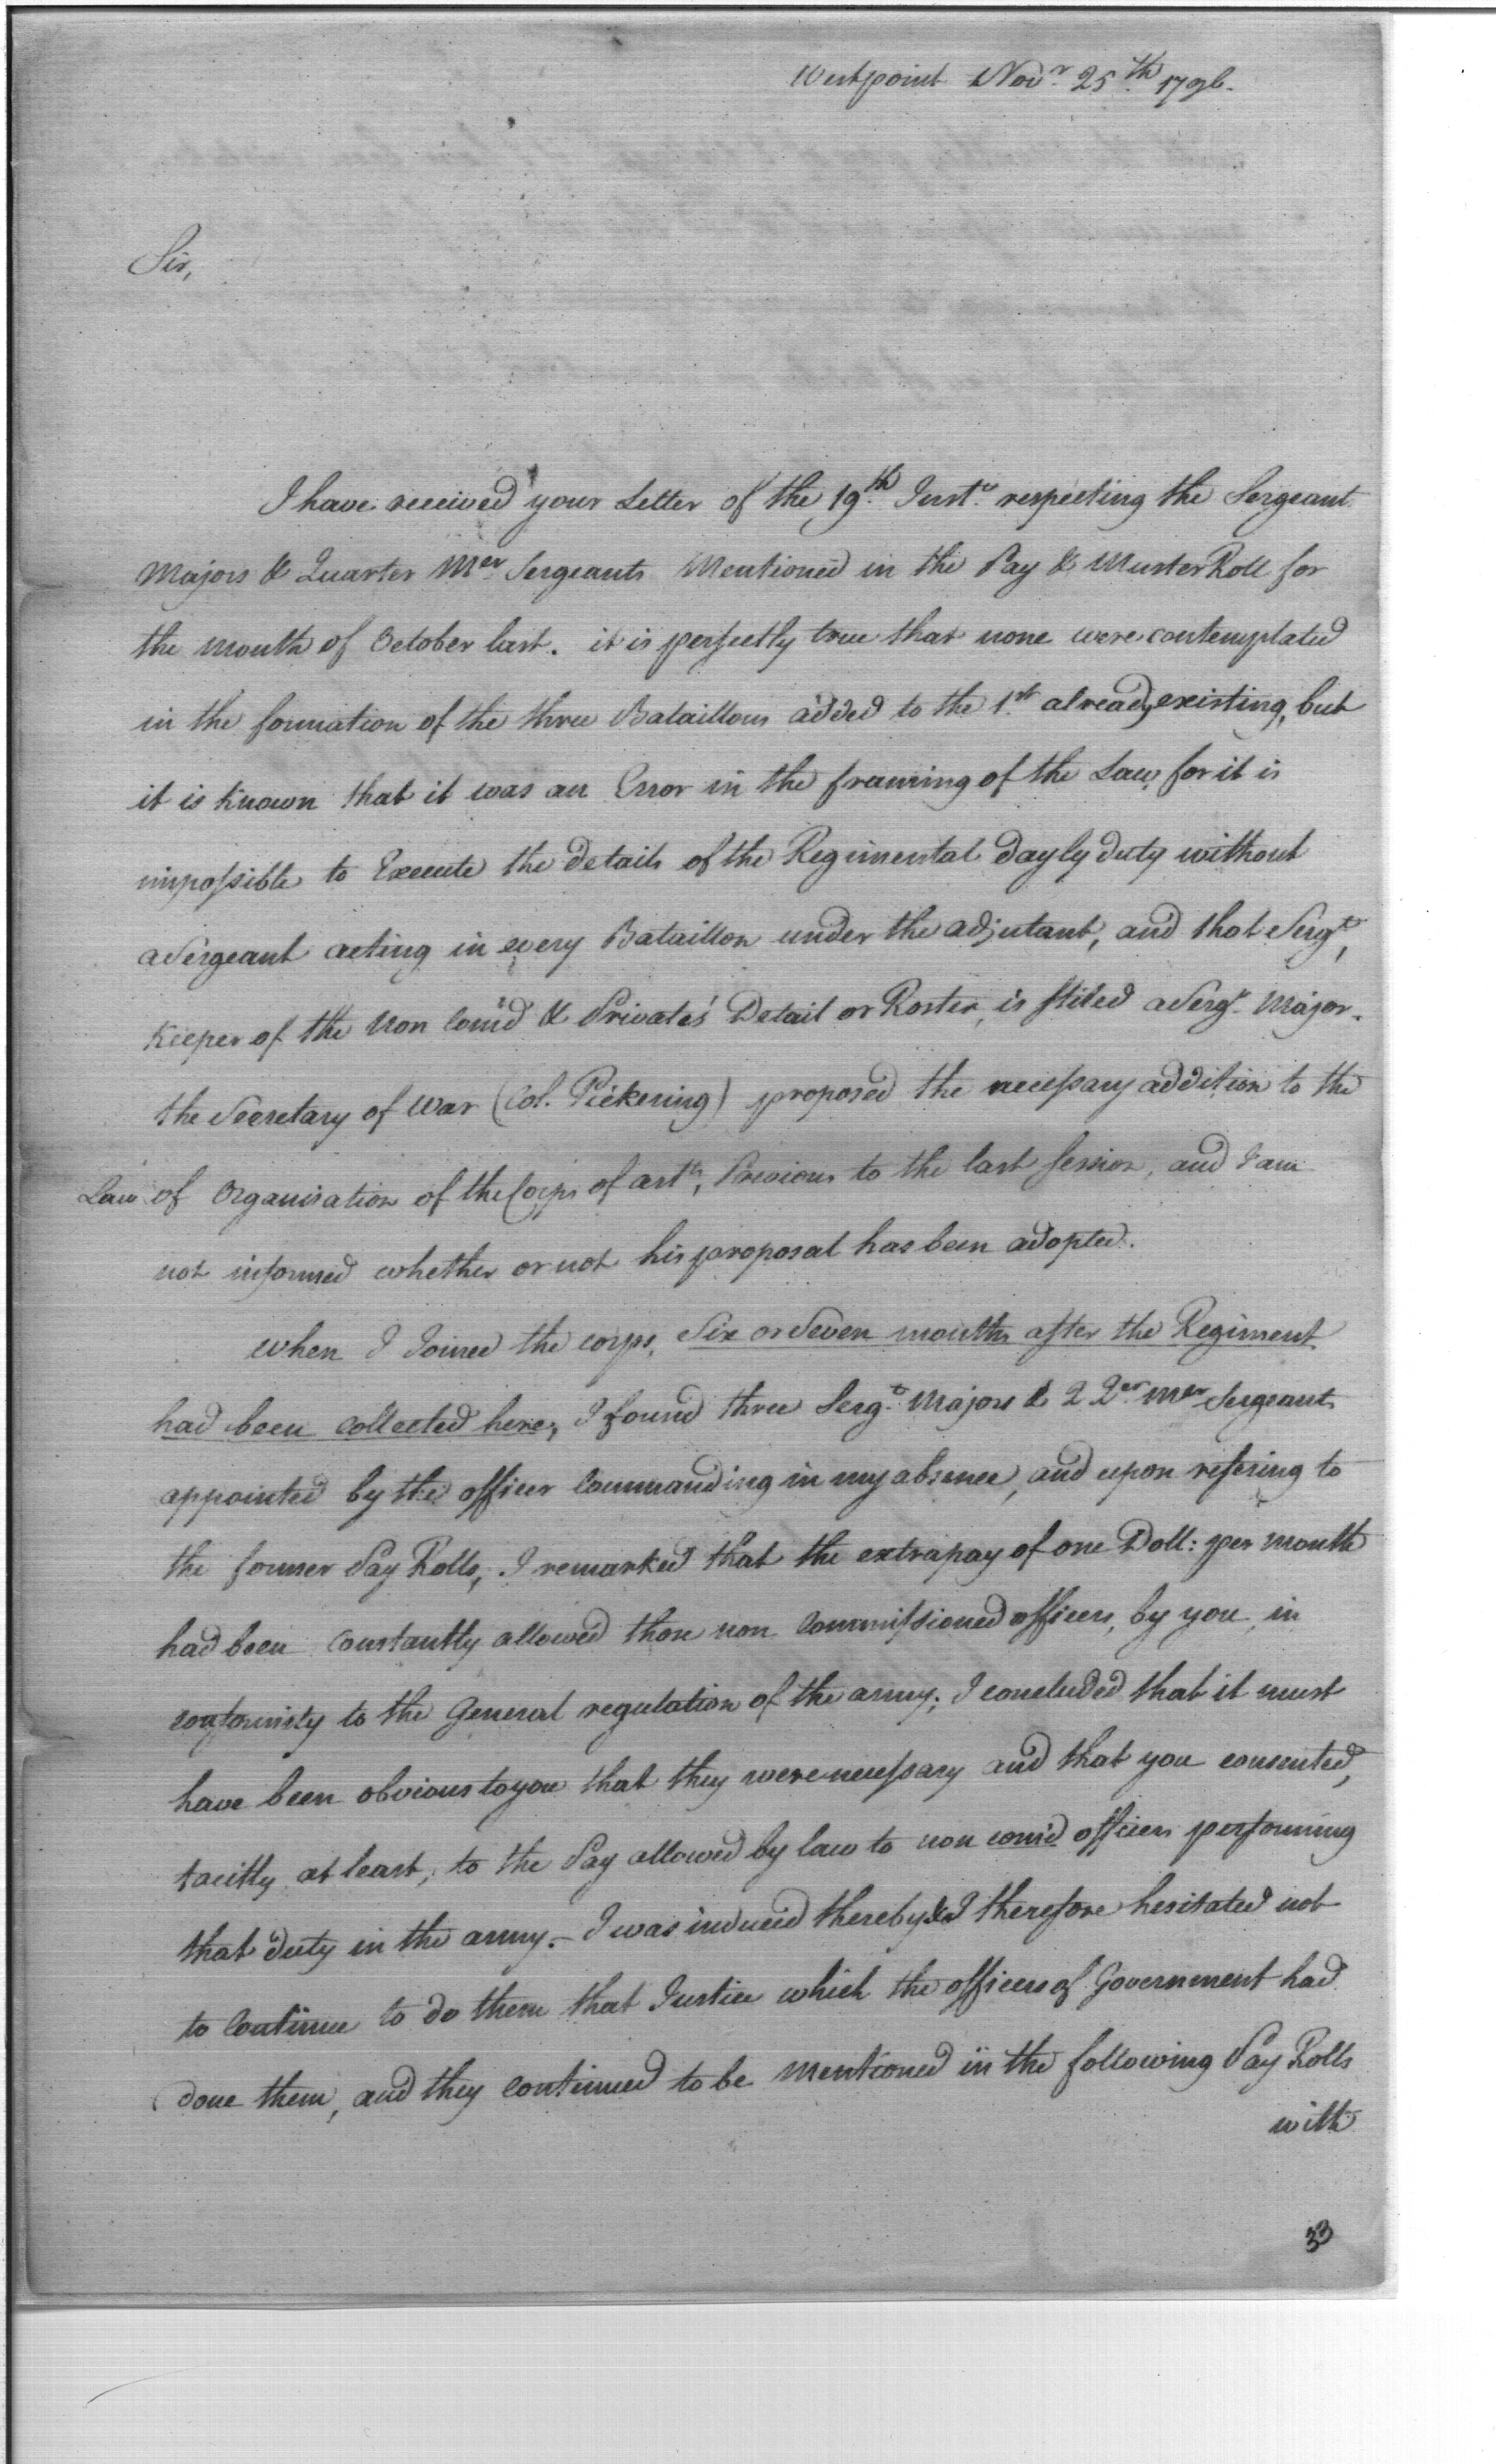 Westpoint Novr. 25th. 1796.
Sir,
I have received your Letter of the 19th. Inst. respecting the Sergeant
Majors & Quarter Mer. Sergeants Mentioned in the Pay & Muster Roll for
the month of October last. it is perfectly true that none were contemplated
in the formation of the three Bataillons added to the 1st. already existing, but
it is known that it was an Error in the framing of the Law, for it is
impossible to Execute the details of the Regimental dayly duty without
a Sergeant acting in every Bataillon under the adjutant, and that Sergt.,
Keeper of the Non Com'd & Privates' Detail or Roster, is stiled a Sergt. Major.
the Secretary of War (Col. Pickering) proposed the necessary addition to the
Law of Organisation of the Corps of art., Previous to the last session, and I am
not informed whether or not his proposal has been adopted.
when I Joined the corps, Six or Seven months after the Regiment
had been collected here, I found three Sergt. Majors & 2 Qer. Mer Sergeants
appointed by the officer Commanding in my absence, and upon refering to
the former Pay Rolls, I remarked that the extrapay of one Doll: per month
had been Constantly allowed those non Commissioned officers, by you, in
conformity to the General regulation of the army; I concluded that it must
have been obvious to you that they were necessary and that you consented,
tacitly at least, to the Pay allowed by law to non com'd officers performing
that duty in the army. – I was induced thereby & I therefore hesitated not
to Continue to do them that Justice which the officers of Government had
done them, and they continued to be Mentioned in the following Pay Rolls
with
33